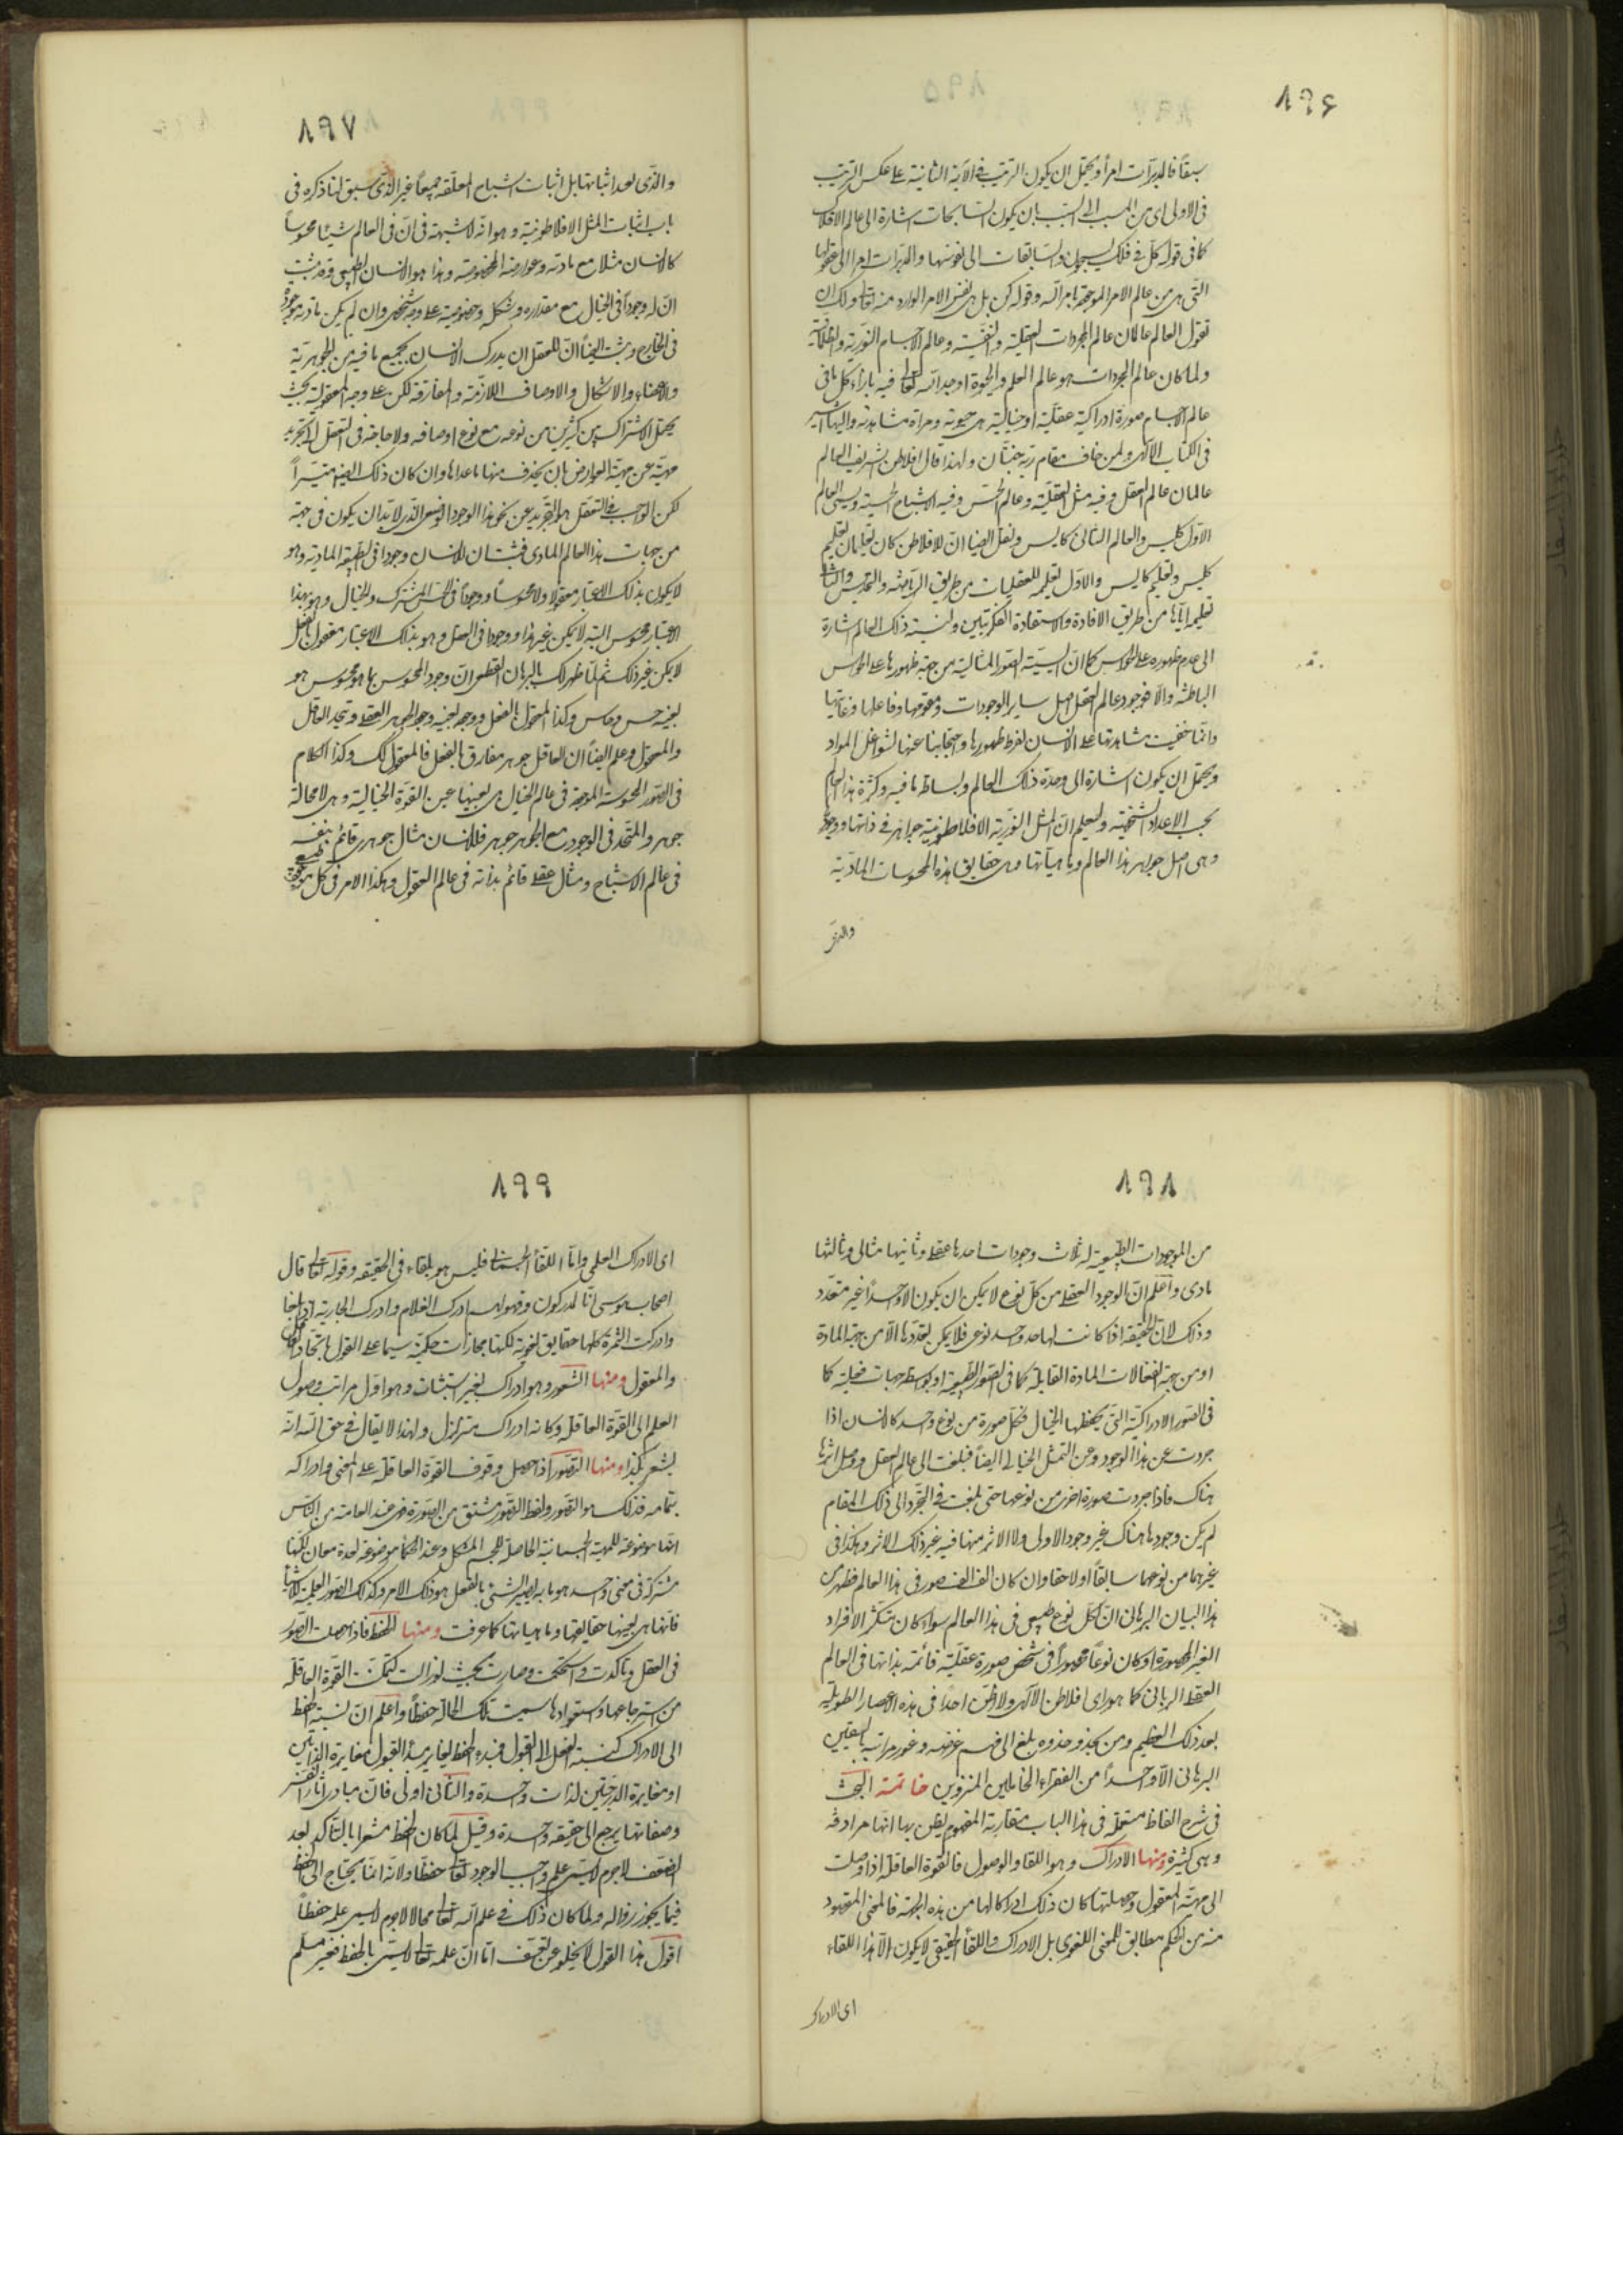 ٨٩۶
سبقاً فالمدبرات امراً ويحتمل ان يكون الترتيب فى الآية الثانية على عكس الترتيب
فى الاولى اى من المسبب الى السبب بان يكون السابحات اشارة الى عالم الافلاك
كما فى قوله كل فى فلك يسبحون والسابقات الى نفوسها والمدبرات امرا الى عقولها
التى هى من عالم الامر الموجود بامر الله وقوله كن بل هى نفس الامر الوارد منه تعالى ولك ان
تقول العالم عالمان عالم المجردات العقلية والنفسية وعالم الاجسام النورية والظلمانية
ولما كان عالم المجردات هو عالم العلم والحيوة اوجد الله تعالى فيه بازاء كل ما فى
عالم الاجسام صورة ادراكية عقلية او خيالية هى حيوته ومرآة مشاهدته واليها اشير
فى الكتاب الآلهى ولمن خاف مقام ربه جنتان ولهذا قال افلاطن الشريف العالم
عالمان عالم العقل وفيه مثل العقلية وعالم الحس وفيه الاشباح الحسية ويسمى العالم
الاول كليس والعالم الثانى كاليس ونقل ايضا ان لافلاطن كان تعليمان تعليم
كليس وتعليم كاليس والاول تعليمه للعقليات من طريق الرياضة والتقديس والثانى
تعليمه اياها من طريق الافادة والاستفادة الفكريتين ولنسبة ذلك العالم اشارة
الى عدم ظهوره على الحواس كما ان ليسية الصور المثالية من جهة ظهورها على الحواس
الباطنة والا فوجود عالم العقل اصل ساير الموجودات ومقومها وفاعلها وغايتها
وانما خفيت مشاهدتها على الانسان لفرط ظهورها واحتجابنا عنها لشواغل المواد
ويحتمل ان يكون اشارة الى وحدة ذلك العالم وبساطة ما فيه وكثرة هذا العالم
بحسب الاعداد الشخصية وليعلم ان المثل النورية الافلاطونية جواهر فى ذاتها ووجودها
وهى اصل جواهر هذا العالم وماهياتها وهى حقايق هذه المحسوسات المادية
والذى
٨٩٧
والذى بعد اثباتها بل اثبات اشباح المعلقة جميعاً غير الذى سبق لنا ذكره فى
باب اثبات المثل الافلاطونية وهو انه لا شبهة فى ان فى العالم شيئا محسوساً
كالانسان مثلا مع مادته وعوارضه المخصوصة وهذا هو الانسان الطبيعى وقد ثبت
ان له وجوداً فى الخيال مع مقداره وشكله وخصوصيته على وجه شخصى وان لم يكن مادته موجودة
فى الخارج وثبت ايضاً ان للعقل ان يدرك الانسان بجميع ما فيه من الجوهرية
والاعضاء والاشكال والاوصاف اللازمة والمفارقة لكن على وجه المعقولية بحيث
يحتمل الاشتراك بين كثيرين من نوعه مع نوع اوصافه ولا حاجة فى التعقل الى تجريد
مهيته عن مهية العوارض بان يحذف منها ما عداها وان كان ذلك ايضا متيسراً
لكن الواجب فى التعقل هو التجريد عن نحو هذا الوجود الوضعى الذى لا بد ان يكون فى جهة
من جهات هذا العالم المادى فثبت ان للانسان وجودا فى الطبيعة المادية وهو
لا يكون بذلك الاعتبار معقولا ولا محسوساً ووجوداً فى الحس المشترك والخيال وهو بهذا
الاعتبار محسوس البتة لا يمكن غير هذا ووجودا فى العقل وهو بذلك الاعتبار معقول بالفعل
لا يمكن غير ذلك ثم لما ظهر لك بالبرهان القطعى ان وجود المحسوس بما هو محسوس هو
بعينه حس وحاس وكذا المعقول بالفعل ووجوده بعينه وجود الجوهر العقلى ويتحد العاقل
والمعقول وعلم ايضاً ان العاقل جوهر مفارق بالفعل فالمعقول كك وكذا الكلام
فى الصور المحسوسة الموجودة فى عالم الخيال هى بعينها عين القوة الخيالية وهى لا محالة
جوهر والمتحد فى الوجود مع الجوهر جوهر فللانسان مثال جوهرى قائم بنفسه
فى عالم الاشباح ومثال عقلى قائم بذاته فى عالم العقول وهكذا الامر فى كل موجود طبيعى
٨٩٨
من الموجودات الطبيعية له ثلاث وجودات احدها عقلى وثانيها مثالى وثالثها
مادى واعلم ان الوجود العقلى من كل نوع لا يمكن ان يكون الا واحداً غير متعدد
وذلك لان الحقيقة اذا كانت لها حد واحد نوعى فلا يمكن تعددها الا من جهة المادة
او من جهة انفعالات المادة القابلة كما فى الصور الطبيعية او بواسطة جهات فعلية كما
فى الصور الادراكية التى يحفظها الخيال فكل صورة من نوع واحد كالانسان اذا
جردت عن هذا الوجود وعن التمثل الخيالى ايضاً فبلغت الى عالم العقل ووصل اثرها
هناك فاذا جردت صورة اخرى من نوعها حتى بلغت فى التجرد الى ذلك المقام
لم يكن وجودها هناك غير وجود الاولى ولا الاثر منها فيه غير ذلك الاثر وهكذا فى
غيرهما من نوعهما سابقاً او لاحقا وان كان الف الف صور فى هذا العالم فظهر من
هذا البيان البرهانى ان لكل نوع طبيعى فى هذا العالم سواء كان متكثر الافراد
الغير المحصورة او كان نوعاً محصوراً فى شخص صورة عقلية قائمة بذاتها فى العالم
العقلى الربانى كما هو راى افلاطن الآلهى ولا اظن احداً فى هذه الاعصار الطويلة
بعد ذلك العظيم ومن يحذو حذوه بلغ الى فهم غرضه وغور مرامه باليقين
البرهانى الا واحداً من الفقراء الخاملين المنزوين خاتمة البحث
فى شرح الفاظ مستعملة فى هذا الباب متقاربة المفهوم يظن بها انها مرادفة
وهى كثيرة ومنها الادراك وهو اللقا والوصول فالقوة العاقلة اذا وصلت
الى مهية المعقول وحصلتها كان ذلك ادراكا لها من هذه الجهة فالمعنى المقصود
منه من الحكم مطابق للمعنى اللغوى بل الادراك واللقاء الحقيقى لا يكون الا هذا اللقاء
اى الادراك
٨٩٩
اى الادراك العلمى واما اللقاء الجسمانى فليس هو بلقاء فى الحقيقة وقوله تعالى قال
اصحاب موسى انا لمدركون وقولهم ادرك الغلام وادركت الجارية اذا بلغا
وادركت الثمرة كلها حقايق لغوية لكنها مجازات حكمية سيما على القول باتحاد العاقل
والمعقول ومنها الشعور وهو ادراك بغير استثبات وهو اول مراتب وصول
العلم الى القوة العاقلة وكانه ادراك متزلزل ولهذا لا يقال فى حق الله انه
يشعر بكذا ومنها التصور اذا حصل وقوف القوة العاقلة على المعنى وادراكه
بتمامه فذلك هو التصور ولفظ التصور مشتق من الصورة فهى عند العامة من الناس
انها موضوعة للهيئة الجسمانية الحاصلة للجسم المشكل وعند الحكماء موضوعة لعدة معان لكنها
مشتركة فى معنى واحد هو ما به يصير الشئ بالفعل هو ذلك الامر وكذلك الصور العلمية للاشياء
فانها هى بعينها حقايقها وماهياتها كما عرفت ومنها الحفظ فاذا حصلت الصور
فى العقل وتاكدت واستحكمت وصارت بحيث لو زالت لتمكنت القوة العاقلة
من استرجاعها واستعوادها سميت تلك الحالة حفظاً واعلم ان نسبة الحفظ
الى الادراك كنسبة الفعل الى القبول فمبدء الحفظ يغاير مبدأ القبول مغايرة الذاتين
او مغايرة الدرجتين لذات واحدة والثانى اولى فان مبادى اثار النفس
وصفاتها يرجع الى حقيقة واحدة وقيل لما كان الحفظ مشعرا بالتاكد بعد
الضعف لا جرم لا يسمى علم واجب الوجود تعالى حفظا ولانه انما يحتاج الى الحفظ
فيما يجوز زواله ولما كان ذلك فى علم الله تعالى محالا لا جرم لا يسمى علمه حفظاً
اقول هذا القول لا يخلو عن تعسف اما ان علمه تعالى لا يسمى بالحفظ فغير مسلم